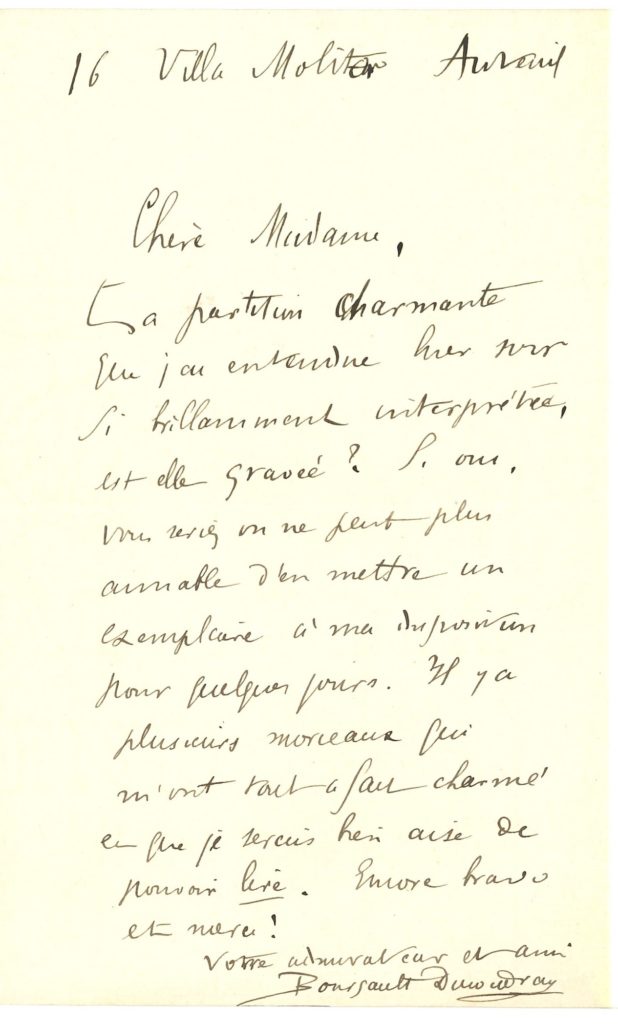 16 Villa Molitor Auteuil
Chère Madame,
La partition charmante
que j'ai entendue hier soir
si brillamment interprétée,
est elle gravée ? Si oui,
vous seriez on ne peut plus
aimable d'en mettre un
exemplaire à ma disposition
pour quelques jours. Il y a
plusieurs morceaux qui
m'ont tout a fait charmé
et que je serais bien aise de
pouvoir lire. Encore bravo
et merci !
Votre admirateur et ami
Bourgault Ducoudray